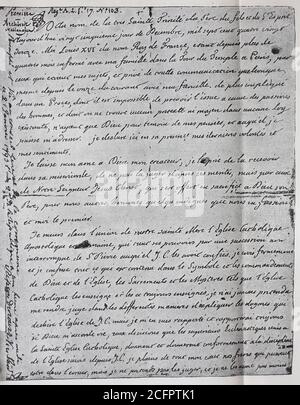 Au nom de la très Sainte Trinité du Père du fils et du St Esprit
Aujourd'hui vingt cinquieme jour de Decembre, mil sept cent quatre vingt
douze. Moi Louis XVI du nom Roy de France, étant depuis plus de
quatre mois enfermé avec ma famille dans la Tour du Temple a Paris, par
ceux qui etoient mes sujets, et privé de toute communication quelconque,
même depuis le onze du courant avec ma famille de plus impliqué
dans un Procès, dont il est impossible de prévoir l'issue a cause des passions
des hommes, et dont on ne trouve aucun pretexte ni moyen dans aucune loy
existante, n'ayant que Dieu pour temoin de mes pensées, et auquel je
puisse m'adresser. je declare ici en sa presence mes dernieres volontés et
mes sentiments.
Je laisse mon ame a Dieu mon createur, je le prie de la recevoir
dans sa misericorde, de ne pas la juger d'apres ses merites, mais par ceux
de Notre Seigneur Jesus Christ, qui s'est offert en sacrifice a Dieu son
Père, pour nous autres hommes quelqu'indignes que nous en fussions
et moi le premier.
Je meurs dans l'union de notre Sainte Mere l'Eglise Catholique
Apostolique et Romaine, qui tient ses pouvoirs par une succession non
interrompue de St Pierre auquel J.C. les avoit confiés, je crois fermement
et je confesse tout ce qui est contenu dans le Symbole et les commandements
de Dieu et de l'Eglise, les Sacrements et les Mysteres tels que l'Eglise
Catholique les enseigne et les a toujours enseignés, je n'ai jamais pretendu
me rendre juge dans les differentes manieres d'expliquer les dogmes qui
dechire l'Eglise de J.C. mais je m'en suis rapporté et rapporterai toujours
si Dieu m'accorde vie, aux decisions que les superieurs Ecclesiastiques unis a
la Sainte Eglise Catholique, donnent et donneront conformement a la discipline
de l'Eglise suivie depuis J.C. je plains de tout mon cœur nos freres qui peuvent
etre dans l'erreur, mais je ne pretends pas les juger, et je ne les aime pas moins
alamy
Image ID: 2CFPTK1
www.alamy.com